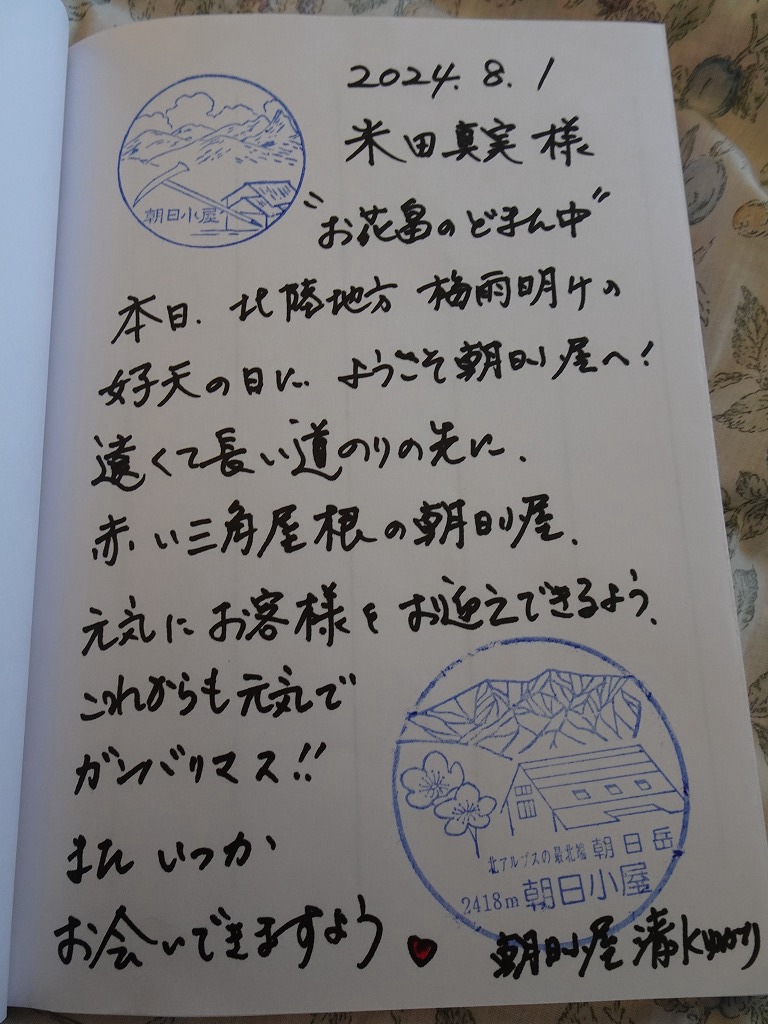 2024.8.1
米田真実様
朝日小屋
"お花畠のどまん中"
本日、北陸地方 梅雨明けの
好天の日に、ようこそ朝日小屋へ!
遠くて長い道のりの先に、
赤い三角屋根の朝日小屋、
元気にお客様をお迎えできるよう、
これからも元気で
ガンバリマス!!
また いつか
お会いできますよう
北アルプスの最北端 朝日岳
2418m 朝日小屋
朝日小屋 清